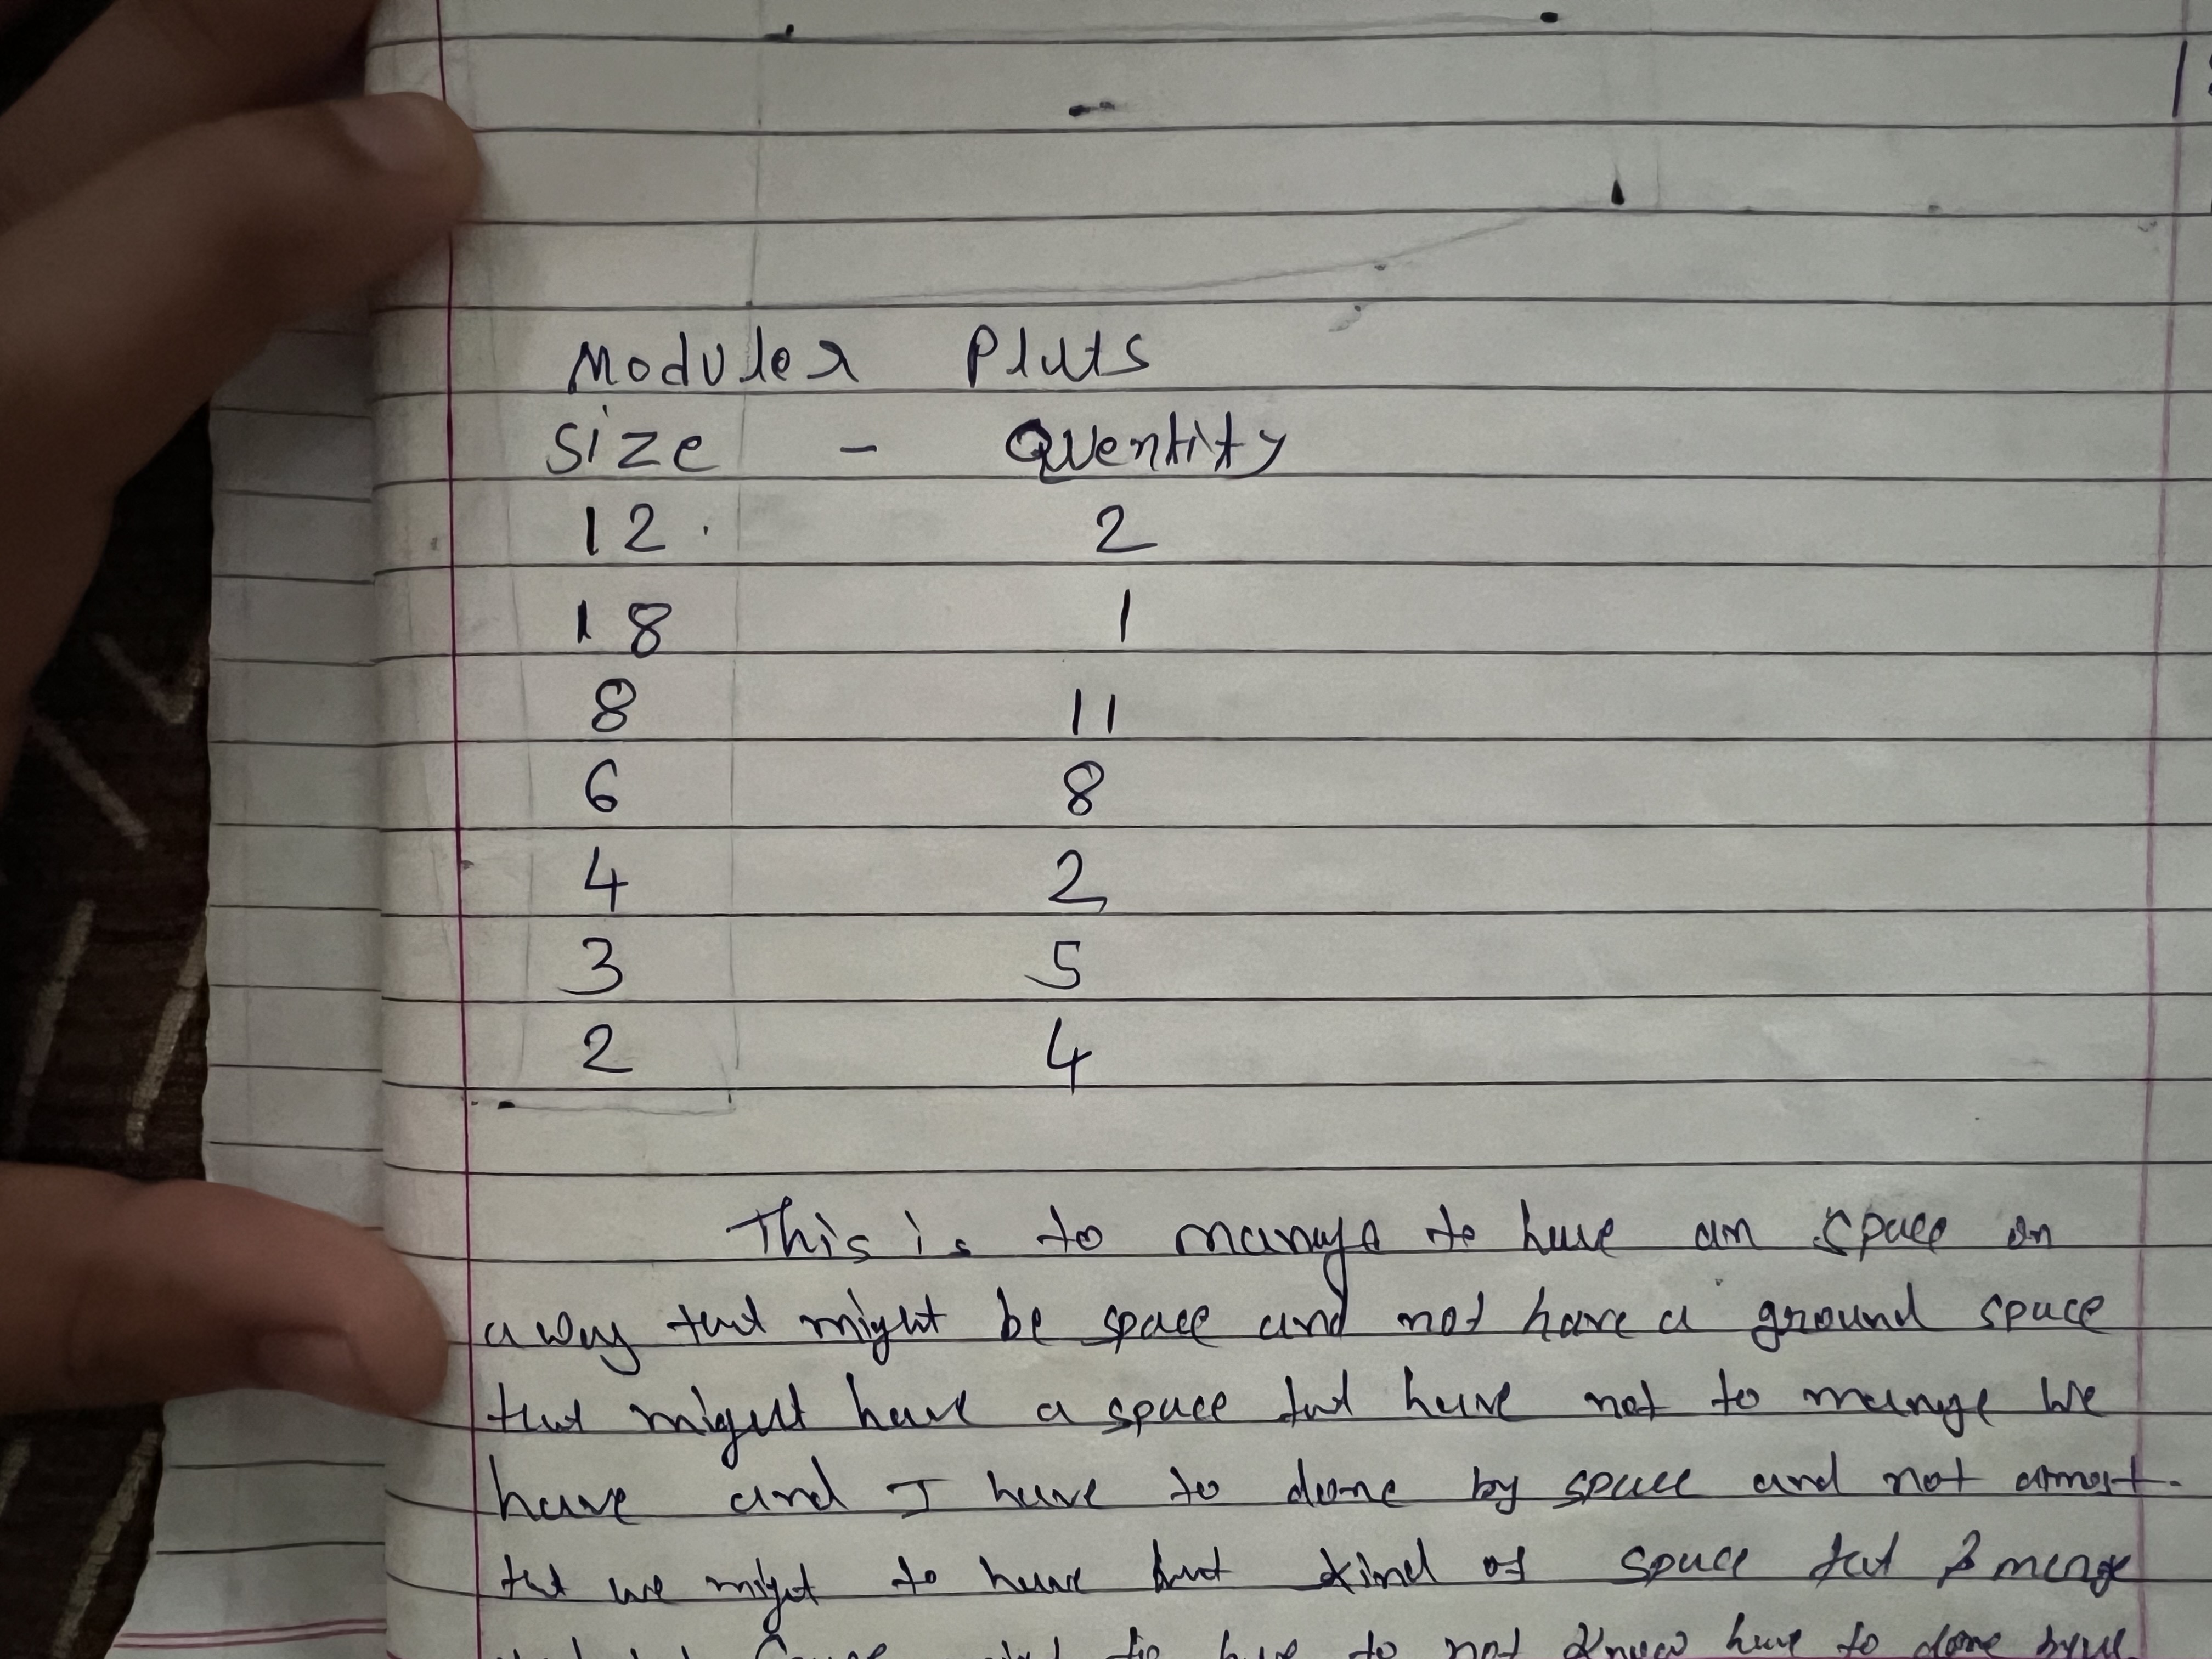 Moduler Pluts
Size - Quentity
12. 2
18 1
8 11
6 8
4 2
3 5
2 4
This is to manage to have an space on
a way that might be space and not have a ground space
that might have a space that have not to mange we
have and I have to done by space and not amost.
tht we might to have but kind of space that